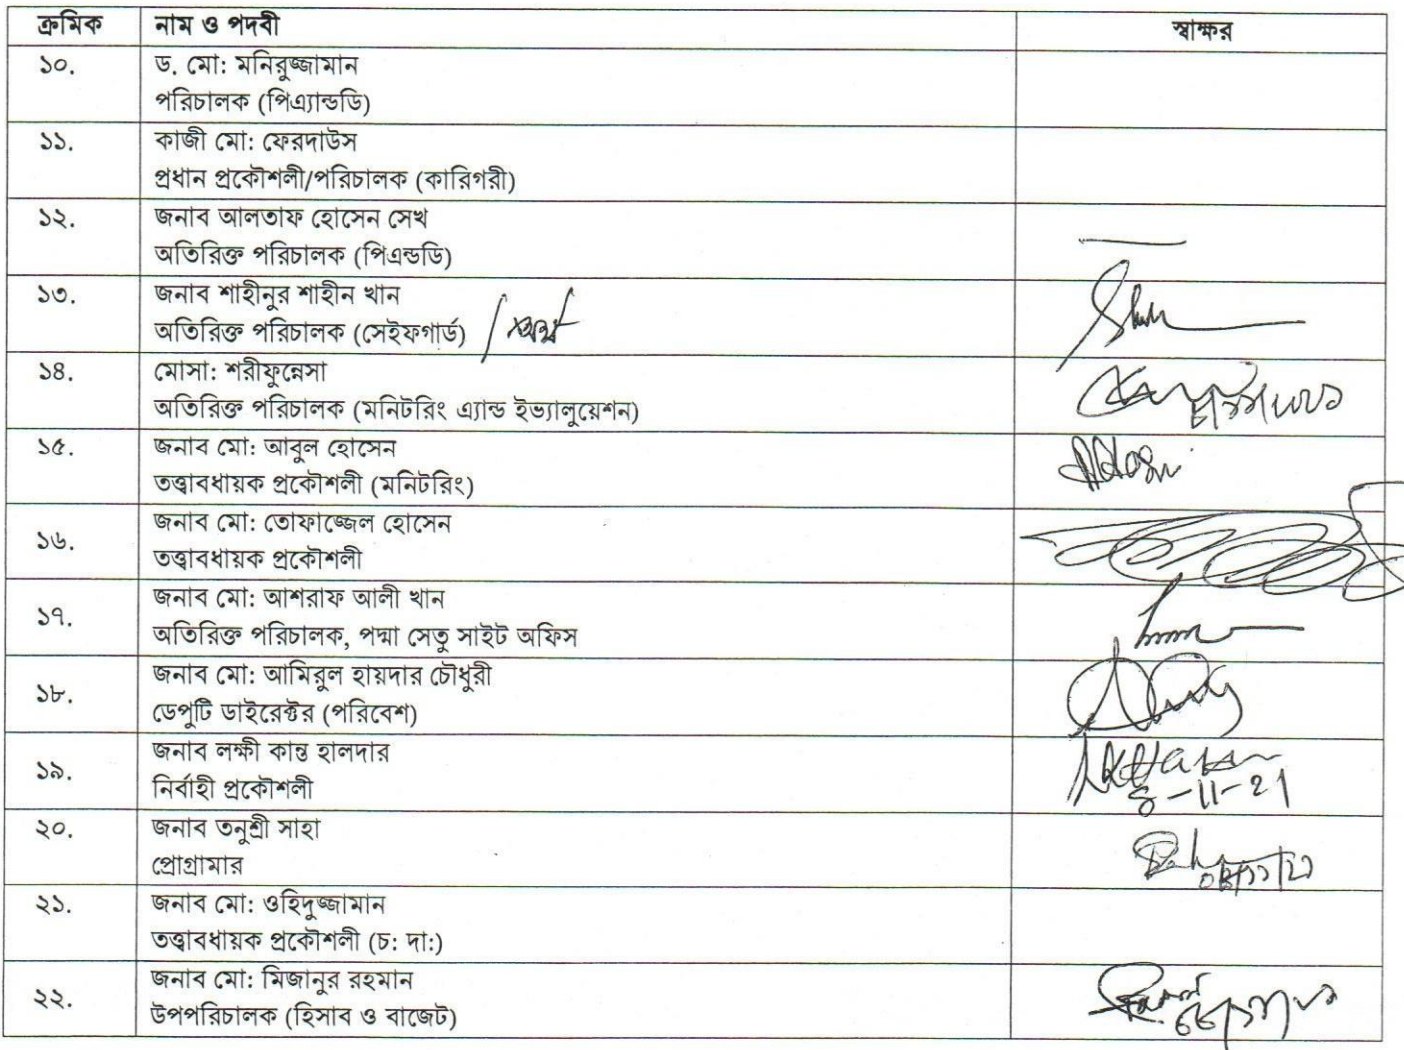 ক্রমিক নাম ও পদবী স্বাক্ষর
১০. ড. মো: মনিরুজ্জামান
পরিচালক (পিএ্যান্ডডি)
১১. কাজী মো: ফেরদাউস
প্রধান প্রকৌশলী/পরিচালক (কারিগরী)
১২. জনাব আলতাফ হোসেন সেখ
অতিরিক্ত পরিচালক (পিএন্ডডি)
১৩. জনাব শাহীনুর শাহীন খান
অতিরিক্ত পরিচালক (সেইফগার্ড)
১৪. মোসা: শরীফুন্নেসা
অতিরিক্ত পরিচালক (মনিটরিং এ্যান্ড ইভ্যালুয়েশন)
১৫. জনাব মো: আবুল হোসেন
তত্ত্বাবধায়ক প্রকৌশলী (মনিটরিং)
১৬. জনাব মো: তোফাজ্জেল হোসেন
তত্ত্বাবধায়ক প্রকৌশলী
১৭. জনাব মো: আশরাফ আলী খান
অতিরিক্ত পরিচালক, পদ্মা সেতু সাইট অফিস
১৮. জনাব মো: আমিরুল হায়দার চৌধুরী
ডেপুটি ডাইরেক্টর (পরিবেশ)
১৯. জনাব লক্ষী কান্ত হালদার
নির্বাহী প্রকৌশলী
২০. জনাব তনুশ্রী সাহা
প্রোগ্রামার
২১. জনাব মো: ওহিদুজ্জামান
তত্ত্বাবধায়ক প্রকৌশলী (চ: দা:)
২২. জনাব মো: মিজানুর রহমান
উপপরিচালক (হিসাব ও বাজেট)